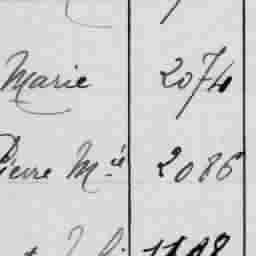 Marie 2074
Pierre Mie 2086